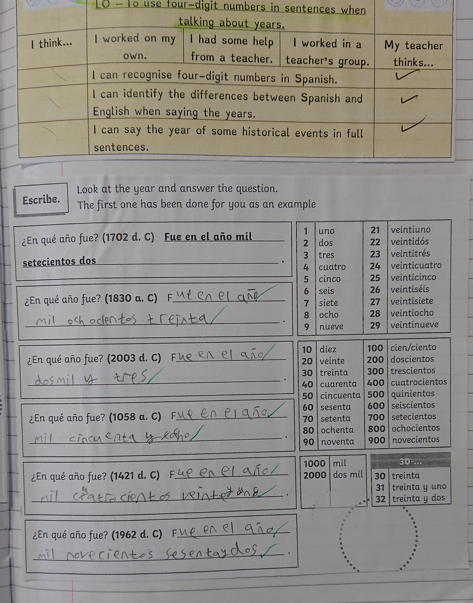 LO – To use four-digit numbers in sentences when
talking about years.
I think... I worked on my own. I had some help from a teacher. I worked in a teacher's group. My teacher thinks...
I can recognise four-digit numbers in Spanish.
I can identify the differences between Spanish and
English when saying the years.
I can say the year of some historical events in full
sentences.
Escribe.
Look at the year and answer the question.
The first one has been done for you as an example
¿En qué año fue? (1702 d. C) Fue en el año mil
setecientos dos.
¿En qué año fue? (1830 a. C) Fue en el año
mil ochocientos treinta.
¿En qué año fue? (2003 d. C) Fue en el año
dosmil y tres.
¿En qué año fue? (1058 a. C) Fue en el año
mil cincuenta y ocho.
¿En qué año fue? (1421 d. C) Fue en el año
mil veinte.
¿En qué año fue? (1962 d. C) Fue en el año
mil novecientos sesentaydos.
1 uno 21 veintiuno
2 dos 22 veintidós
3 tres 23 veintitrés
4 cuatro 24 veinticuatro
5 cinco 25 veinticinco
6 seis 26 veintiséis
7 siete 27 veintisiete
8 ocho 28 veintiocho
9 nueve 29 veintinueve
10 diez 100 cien/ciento
20 veinte 200 doscientos
30 treinta 300 trescientos
40 cuarenta 400 cuatrocientos
50 cincuenta 500 quinientos
60 sesenta 600 seiscientos
70 setenta 700 setecientos
80 ochenta 800 ochocientos
90 noventa 900 novecientos
1000 mil
2000 dos mil
30-...
30 treinta
31 treinta y uno
32 treinta y dos